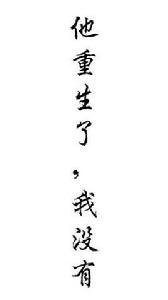 他重生了，我没有